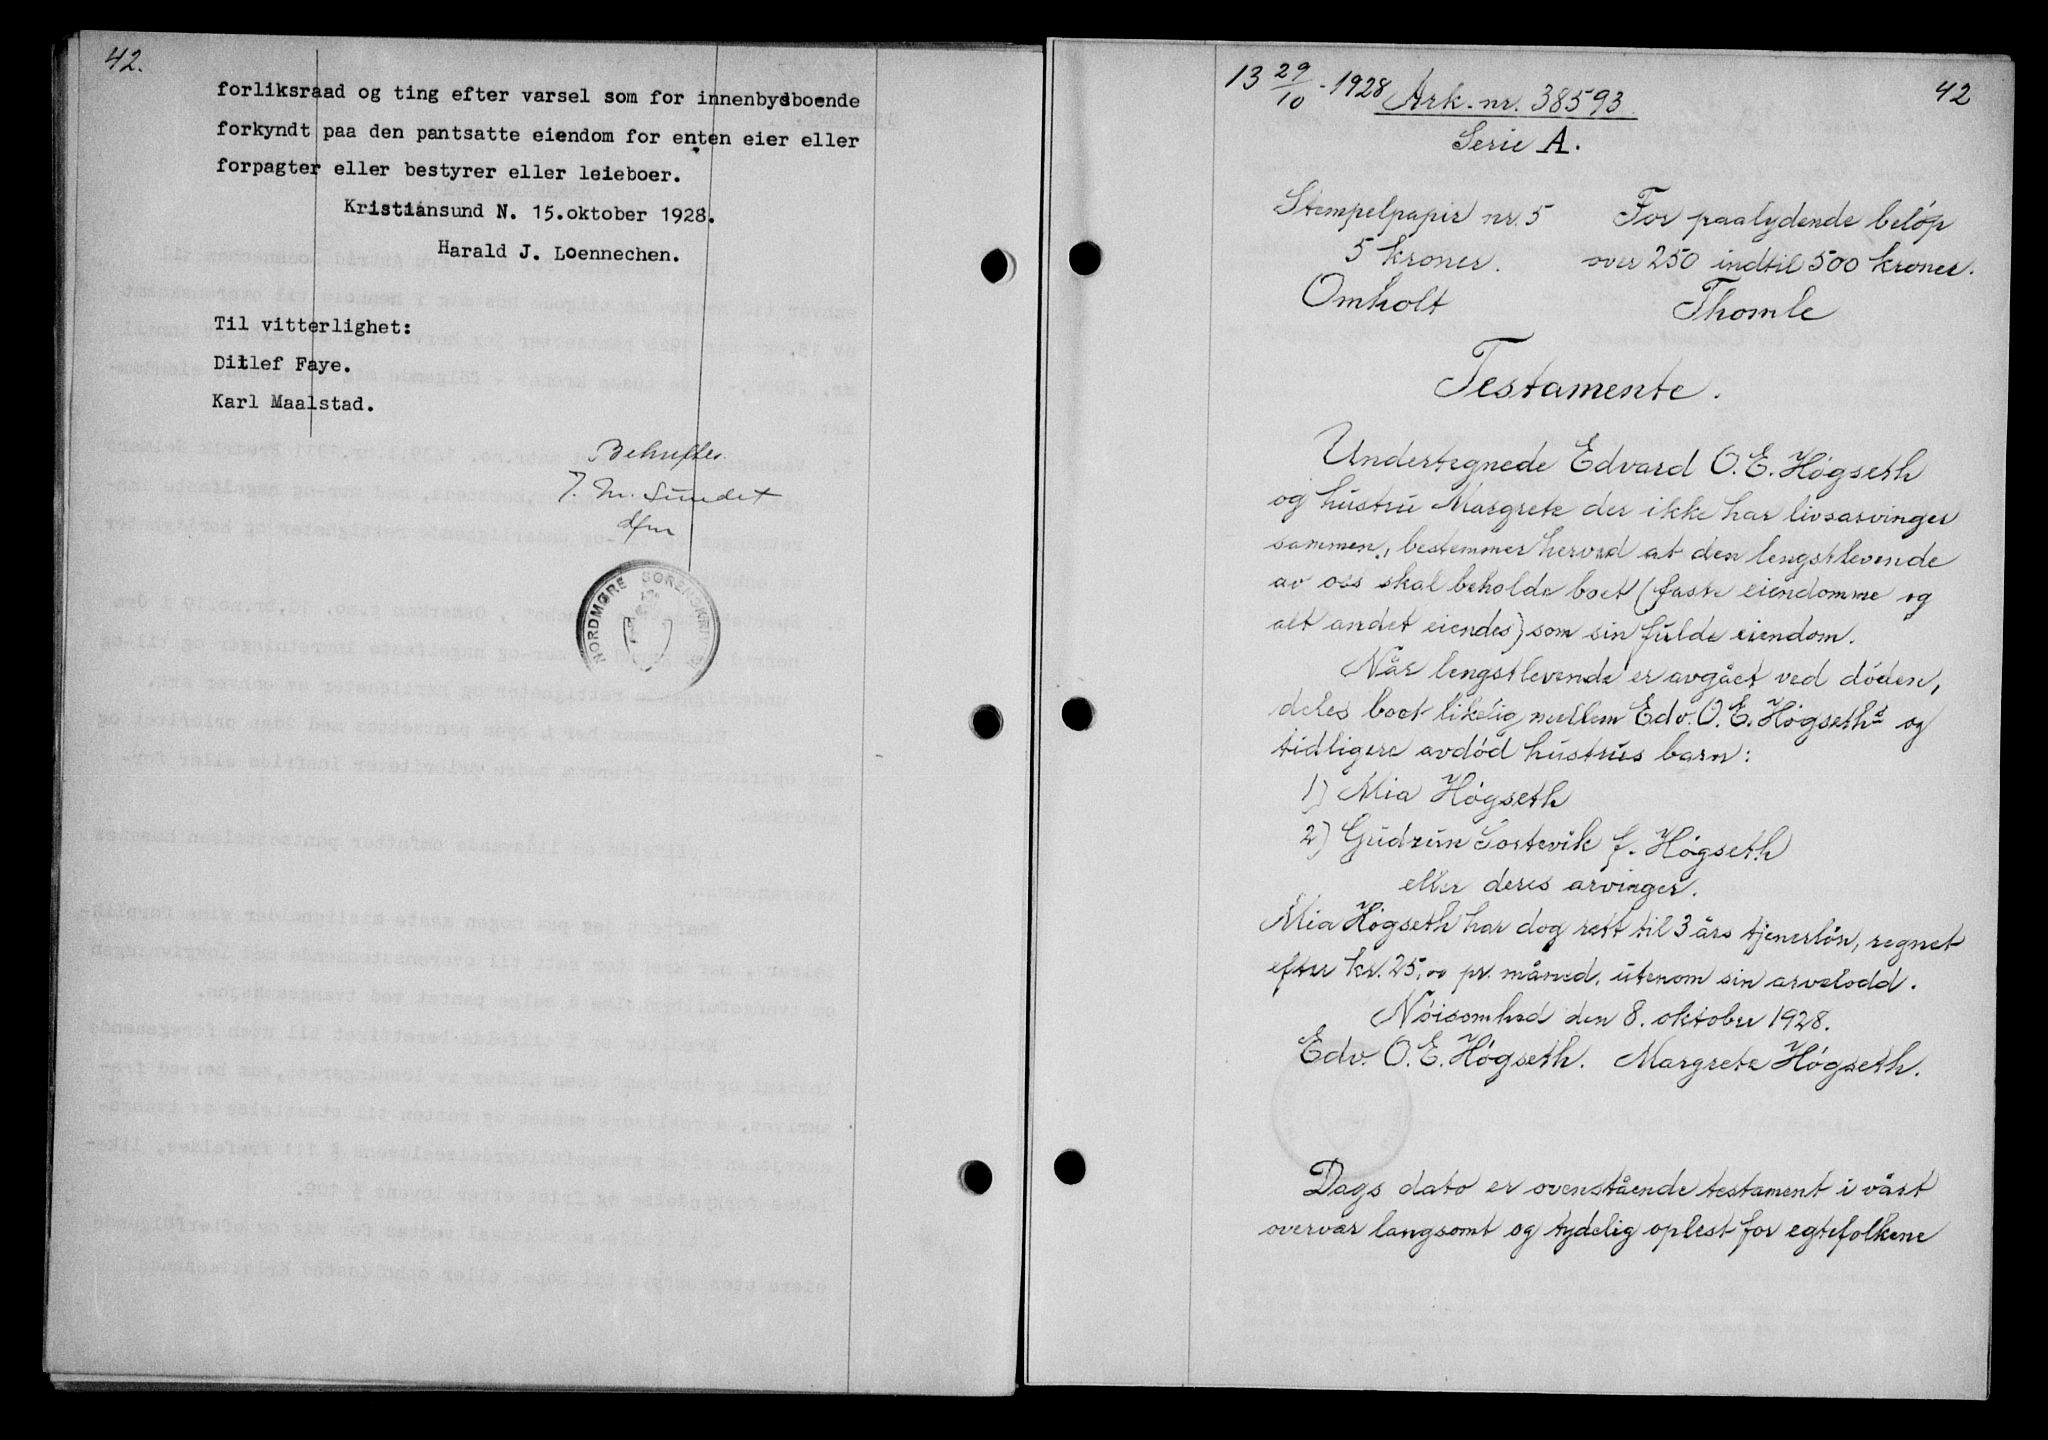 42.
forliksraad og ting efter varsel som for innenbydsboende
forkyndt paa den pantsatte eiendom for enten eier eller
forpagter eller bestyrer eller leieboer.
Kristiansund N. 15.oktober 1928.
Harald J. Loennechen.
Til vitterlighet:
Ditlef Faye.
Karl Maalstad.
J. M. Sundet
NORDMØRE SORENSKRIV
13 29/10-1928
42
Ark.nr. 38593
Serie A.
Stempelpapir nr. 5
5 kroner.
Omholt
For paalydende beløp
over 250 indtil 500 kroner.
Thomle
Testamente.
Undertegnede Edvard O.E. Høgseth
og hustru Margrete der ikke har livsarvinger
sammen, bestemmer herved at den lengstlevende
av oss skal beholde boet (faste eiendomme og
alt andet eiendes) som sin fulde eiendom.
Når lengstlevende er avgået ved døden,
deles boet likelig mellem Edv. O.E. Høgseths og
tidligere avdød hustrus barn:
1) Mia Høgseth
2) Gudrun Sortevik f. Høgseth
eller deres arvinger.
Mia Høgseth har dog rett til 3 års tjenerløn, regnet
efter kr. 25,00 pr. måned, utenom sin arvelodd.
Nöisomhed den 8. oktober 1928.
Edv. O.E. Høgseth. Margrete Høgseth.
Dags dato er ovenstående testament i vårt
overvær langsomt og tydelig oplest for egtefolkene